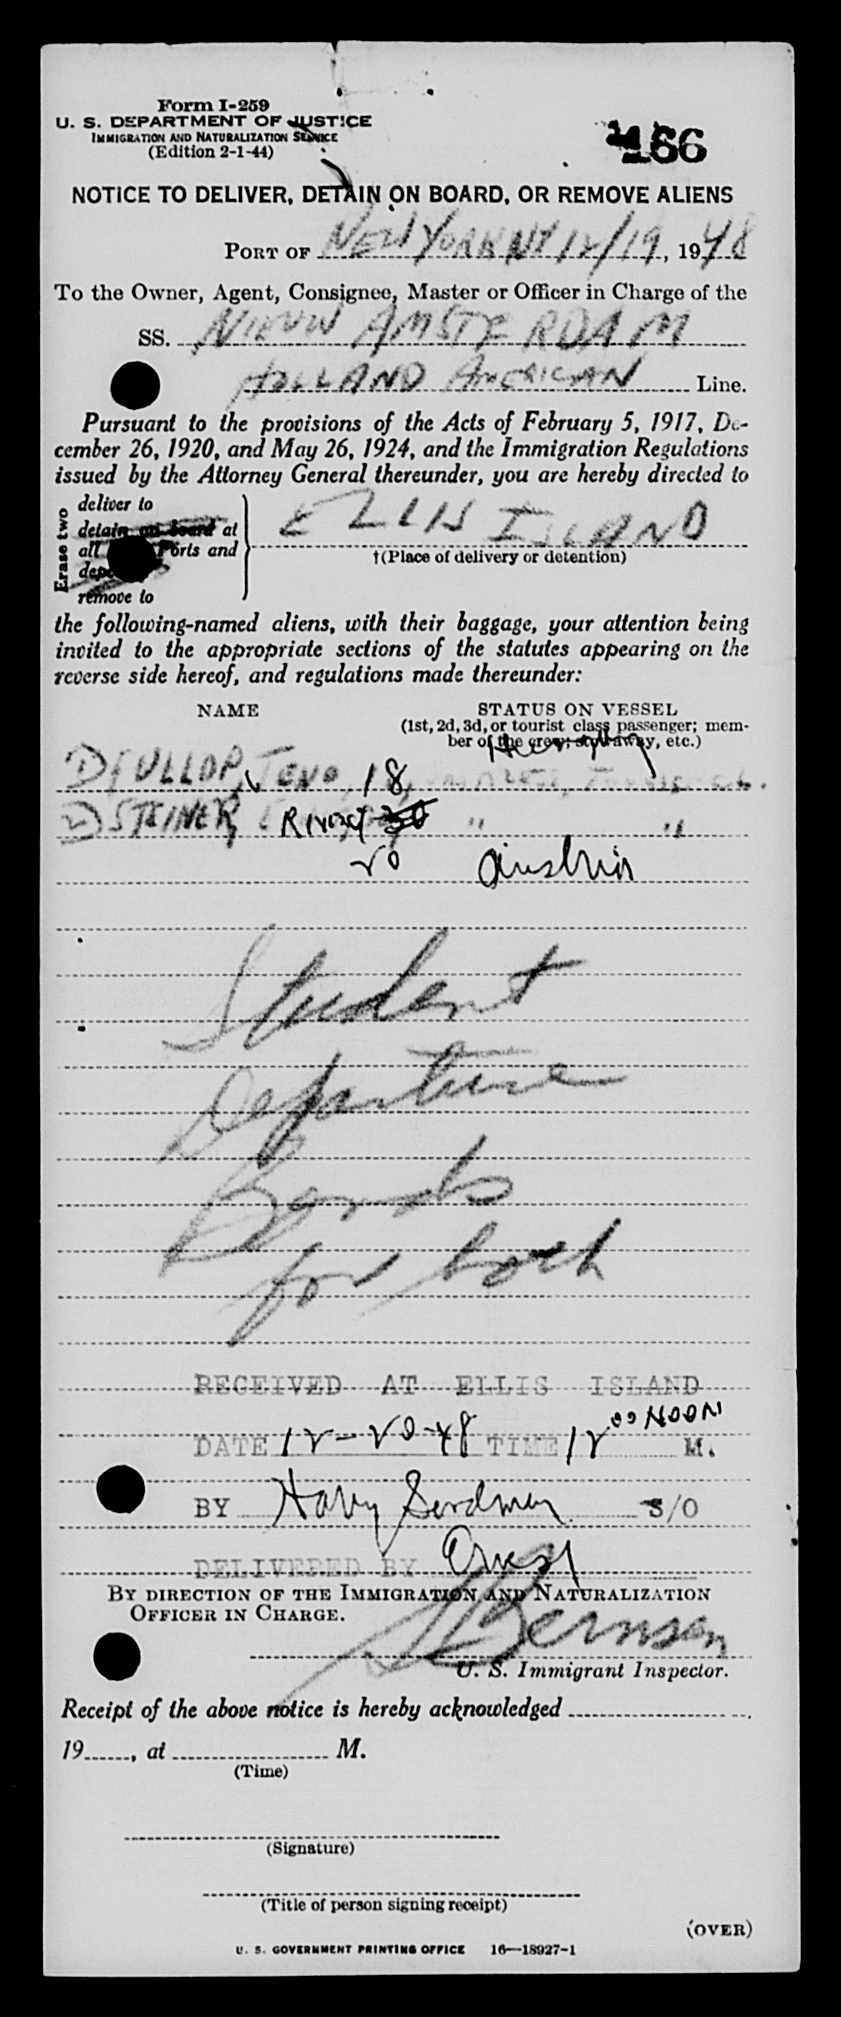 Form I-259
U. S. DEPARTMENT OF JUSTICE
IMMIGRATION AND NATURALIZATION SERVICE
(Edition 2-1-44)
166
NOTICE TO DELIVER, DETAIN ON BOARD, OR REMOVE ALIENS
PORT OF NEW YORK NY 12/19, 1948
To the Owner, Agent, Consignee, Master or Officer in Charge of the
SS. NIEUW AMSTERDAM
HOLLAND AMERICAN Line.
Pursuant to the provisions of the Acts of February 5, 1917, De-
cember 26, 1920, and May 26, 1924, and the Immigration Regulations
issued by the Attorney General thereunder, you are hereby directed to
Erase two
deliver to
detain on board at
all Ports and
remove to
ELLIS ISLAND
†(Place of delivery or detention)
the following-named aliens, with their baggage, your attention being
invited to the appropriate sections of the statutes appearing on the
reverse side hereof, and regulations made thereunder:
NAME STATUS ON VESSEL
(1st, 2d, 3d, or tourist class passenger; mem-
ber of the crew; stowaway, etc.)
18
STEINER 30 " "
20 Austria
Student
Departure
Bonds
for both
RECEIVED AT ELLIS ISLAND
DATE 12-20-48 TIME 12 00 NOON M.
BY Harry S/O
DELIVERED BY
BY DIRECTION OF THE IMMIGRATION AND NATURALIZATION
OFFICER IN CHARGE.
U. S. Immigrant Inspector.
Receipt of the above notice is hereby acknowledged
19, at M.
(Time)
(Signature)
(Title of person signing receipt)
(OVER)
U. S. GOVERNMENT PRINTING OFFICE 16—18927-1